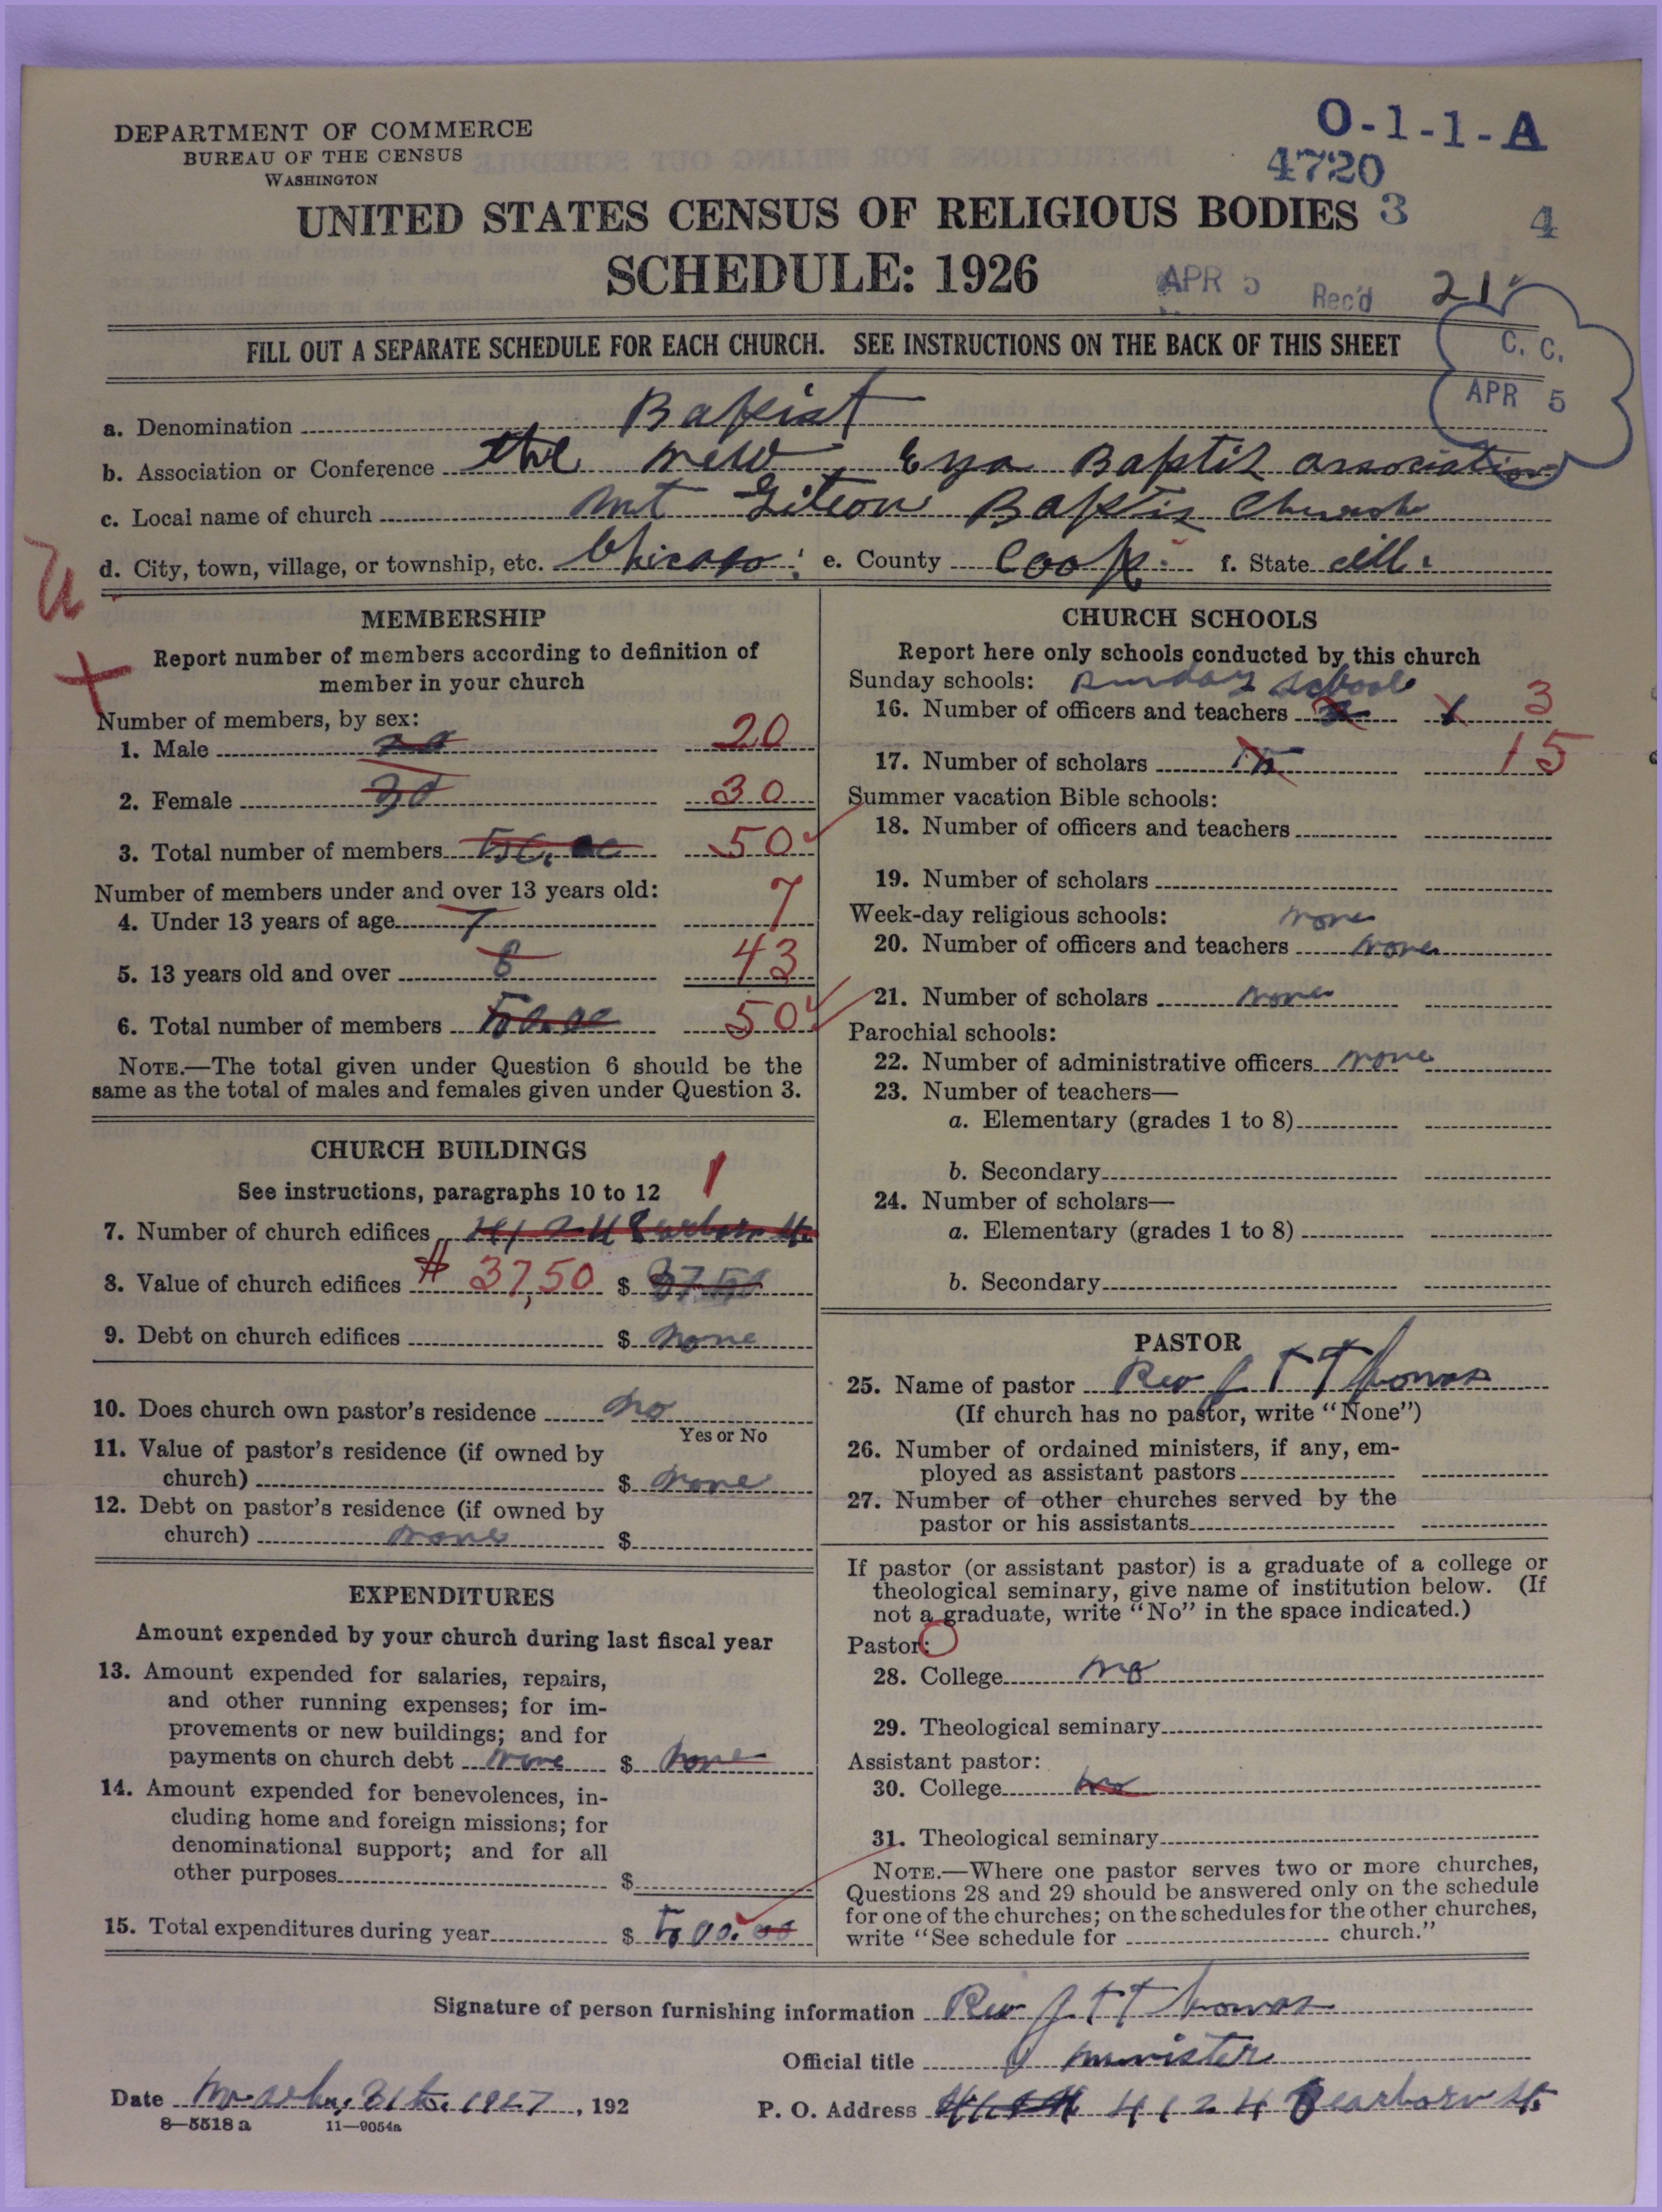 DEPARTMENT OF COMMERCE
BUREAU OF THE CENSUS
WASHINGTON
O-1-1-A
4720
UNITED STATES CENSUS OF RELIGIOUS BODIES 3 4
SCHEDULE: 1926 APR 5 Rec'd 21
FILL OUT A SEPARATE SCHEDULE FOR EACH CHURCH. SEE INSTRUCTIONS ON THE BACK OF THIS SHEET
C. C.
APR 5
a. Denomination Baptist
b. Association or Conference the new Era Baptis association
c. Local name of church Mt Gileon Baptis Church
d. City, town, village, or township, etc. Chicago e. County Cook f. State ill.
MEMBERSHIP
Report number of members according to definition of
member in your church
Number of members, by sex:
1. Male 20 20
2. Female 30 30
3. Total number of members 50.00 50
Number of members under and over 13 years old:
4. Under 13 years of age 7 7
5. 13 years old and over 8 43
6. Total number of members 50.00 50
NOTE.—The total given under Question 6 should be the
same as the total of males and females given under Question 3.
CHURCH BUILDINGS
See instructions, paragraphs 10 to 12 1
7. Number of church edifices 4124 Dearborn St
8. Value of church edifices # 37,50 $ 37.50
9. Debt on church edifices $ none
10. Does church own pastor's residence no
Yes or No
11. Value of pastor's residence (if owned by
church) $ none
12. Debt on pastor's residence (if owned by
church) none $
EXPENDITURES
Amount expended by your church during last fiscal year
13. Amount expended for salaries, repairs,
and other running expenses; for im-
provements or new buildings; and for
payments on church debt none $ none
14. Amount expended for benevolences, in-
cluding home and foreign missions; for
denominational support; and for all
other purposes $
15. Total expenditures during year $ 500.00
CHURCH SCHOOLS
Report here only schools conducted by this church
Sunday schools: Sunday School
16. Number of officers and teachers 3
17. Number of scholars 15 15
Summer vacation Bible schools:
18. Number of officers and teachers
19. Number of scholars
Week-day religious schools: none
20. Number of officers and teachers none
21. Number of scholars none
Parochial schools:
22. Number of administrative officers none
23. Number of teachers—
a. Elementary (grades 1 to 8)
b. Secondary
24. Number of scholars—
a. Elementary (grades 1 to 8)
b. Secondary
PASTOR
25. Name of pastor Rev J. T Thomas
(If church has no pastor, write "None")
26. Number of ordained ministers, if any, em-
ployed as assistant pastors
27. Number of other churches served by the
pastor or his assistants
If pastor (or assistant pastor) is a graduate of a college or
theological seminary, give name of institution below. (If
not a graduate, write "No" in the space indicated.)
Pastor:
28. College no
29. Theological seminary
Assistant pastor:
30. College no
31. Theological seminary
NOTE.—Where one pastor serves two or more churches,
Questions 28 and 29 should be answered only on the schedule
for one of the churches; on the schedules for the other churches,
write "See schedule for church."
Signature of person furnishing information Rev J. T Thomas
Official title minister
Date March, 31st. 1927, 192
P. O. Address 4124 Dearborn St.
8—5518 a 11—9054a